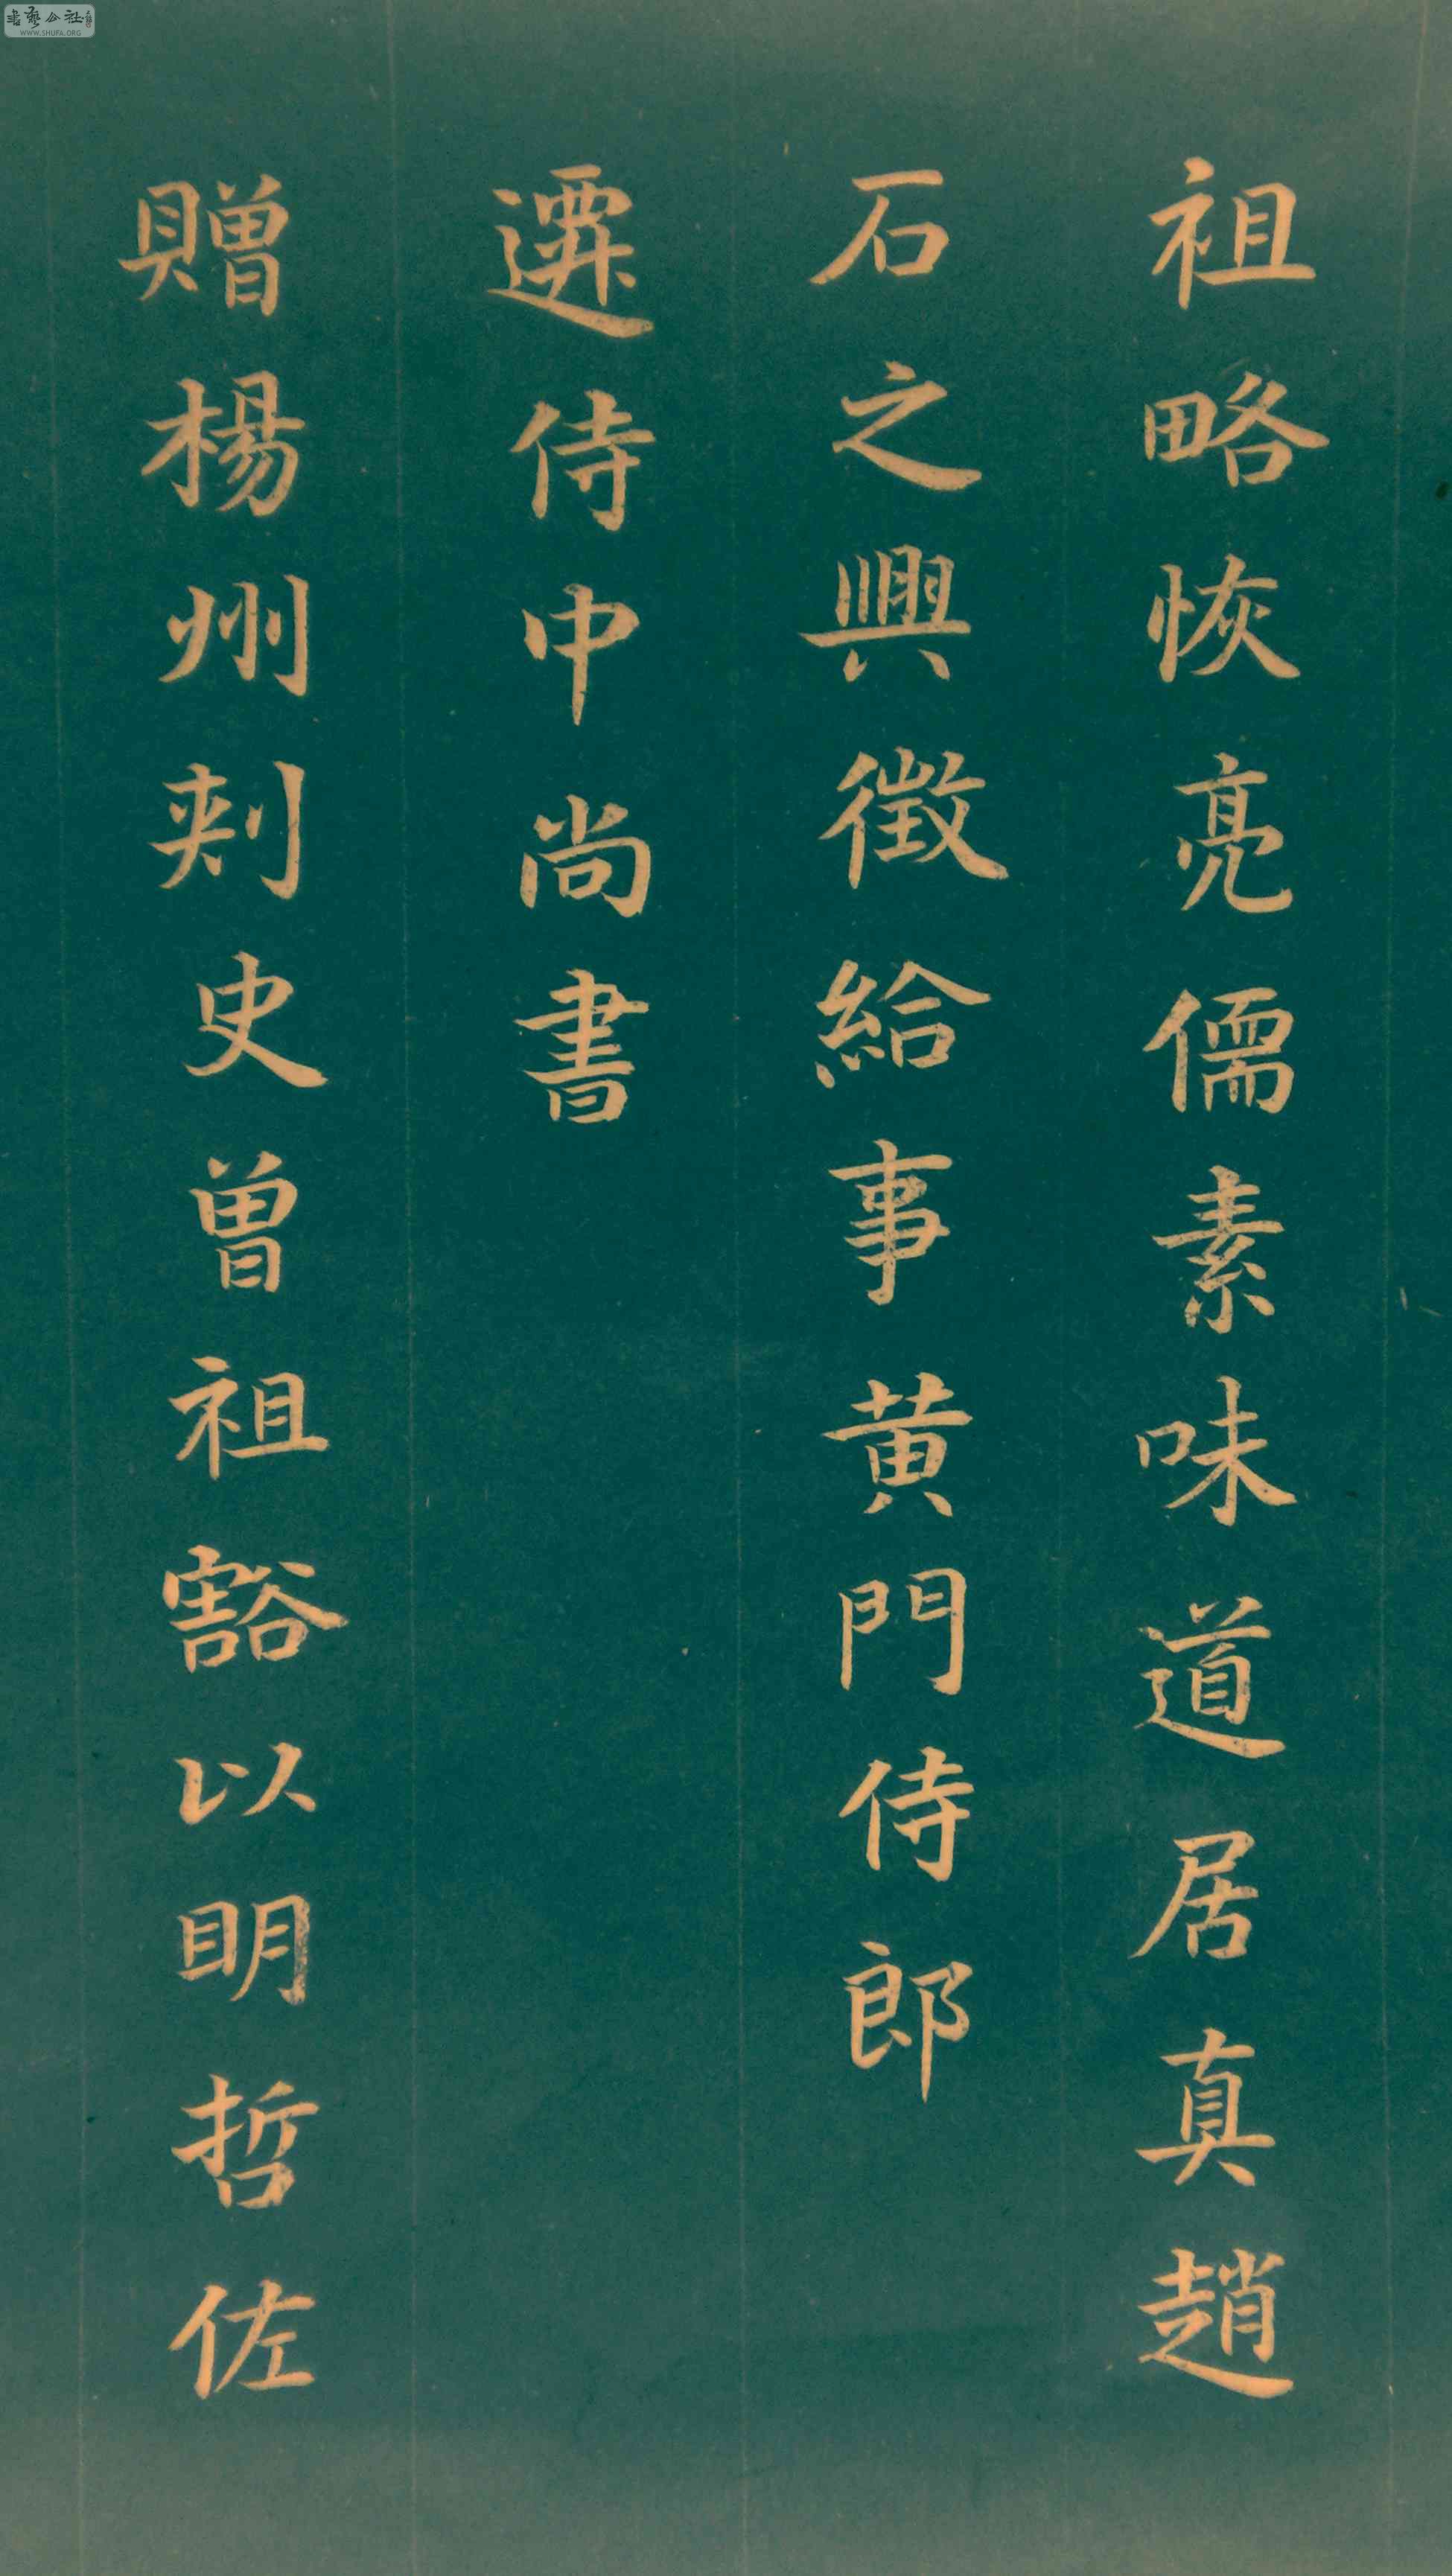 祖略恢亮儒素味道居真趙
石之興徵給事黄門侍郎
遷侍中尚書
贈楊州刺史曽祖豁以明哲佐
書藝公社
WWW.SHUFA.ORG